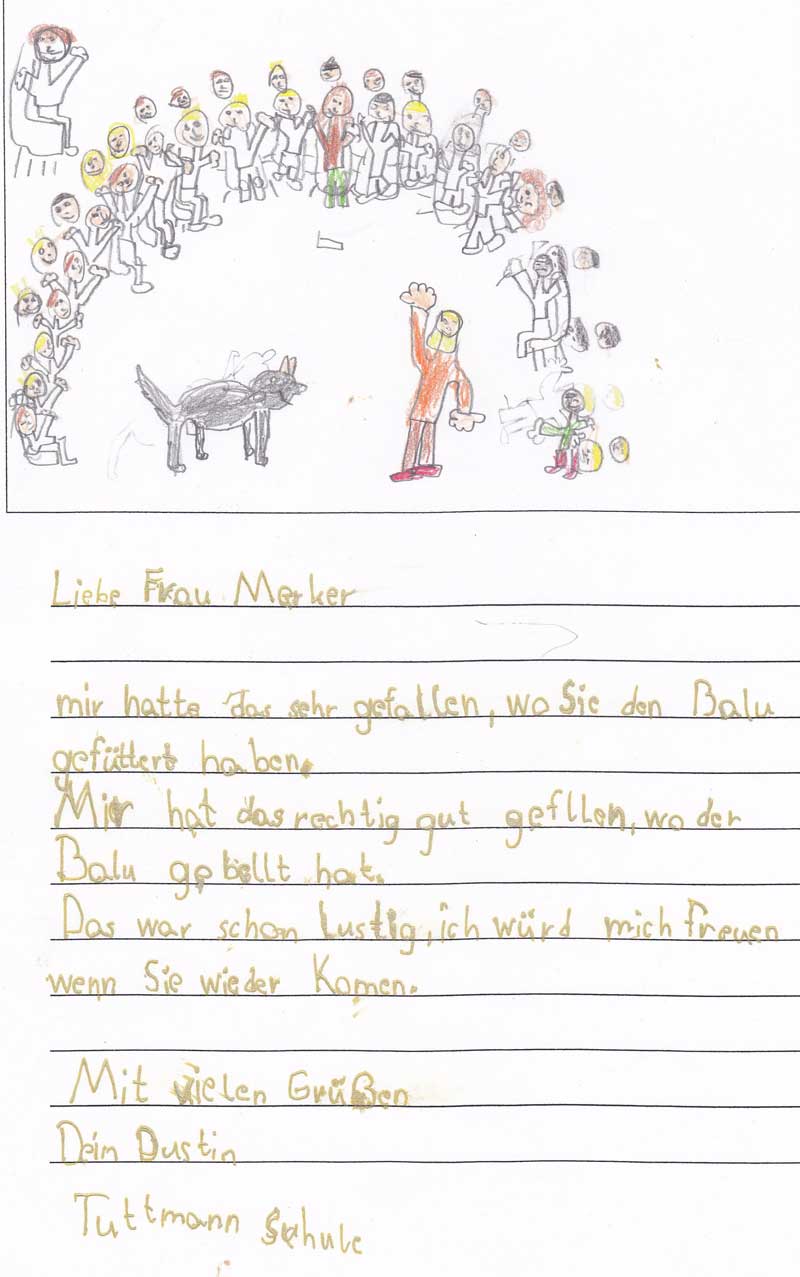 Liebe Frau Merker
mir hatte das sehr gefallen, wo Sie den Balu
gefüttert haben.
Mir hat das rechtig gut gefllen, wo der
Balu gebellt hat.
Das war schon lustig, ich würd mich freuen
wenn Sie wieder Komen.
Mit vielen Grüßen
Dein Dustin
Tuttmann Schule